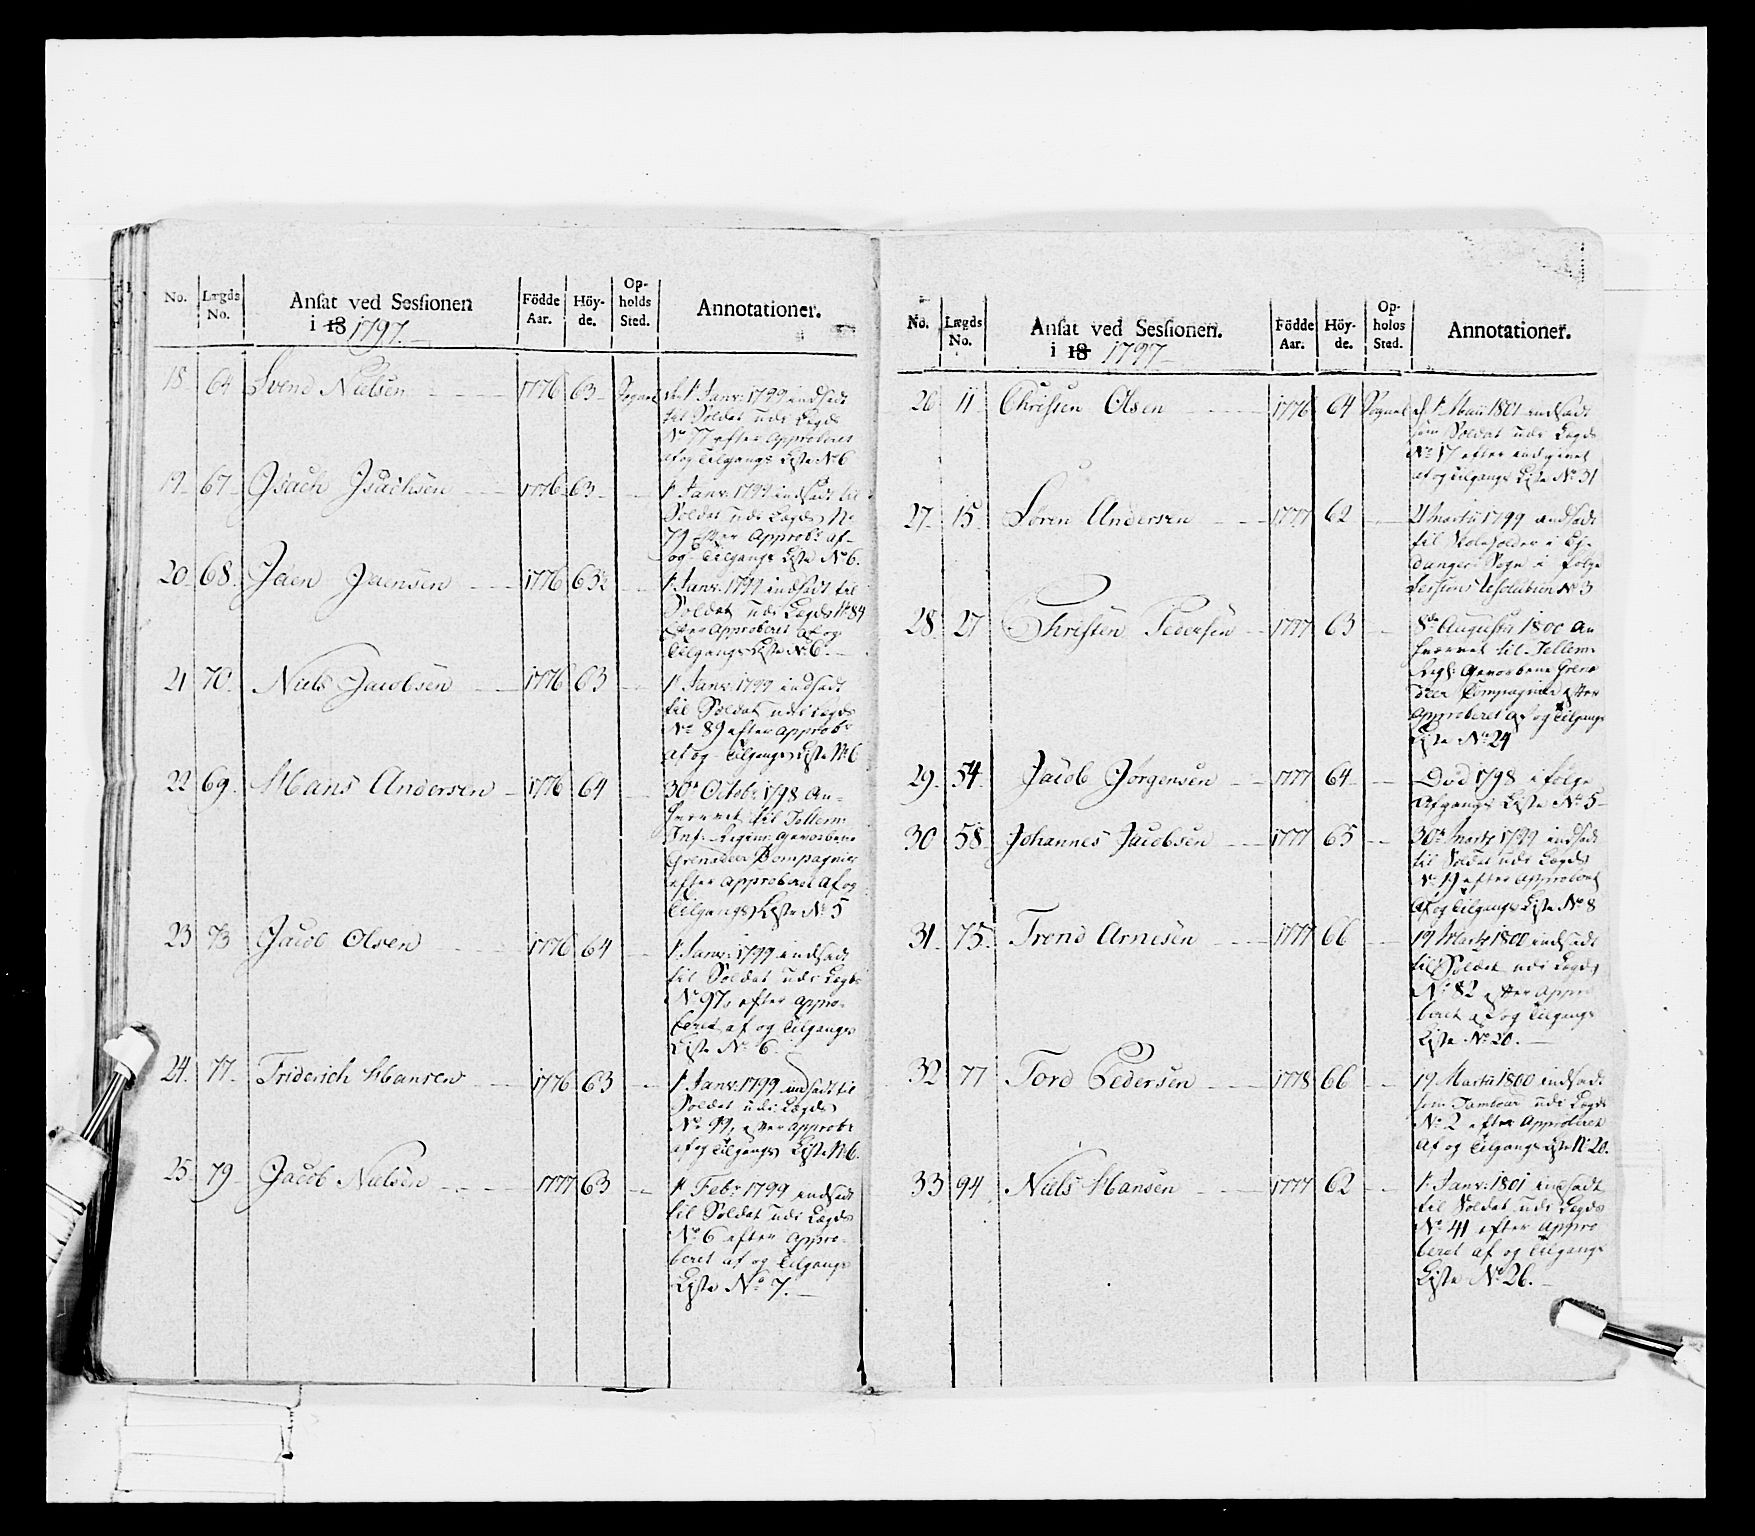 No. Lægds No. Ansat ved Sessionen i 18 1797. Födde Aar. Höy-de. Op-holds Sted. Annotationer.
18 64 Svend Nielsen 1776 63 Sognet d 1 Janv: 1799 indsadt
til Soldat udi Lægd
No 77 efter Approberet
af og tilgangs Liste No 6
19 67 Isach Isachsen 1776 63 1 Janv: 1799 indsadt til
Soldat udi Lægds No
79 efter Approbr af-
og tilgangs Liste No 6.
20 68 Jaen Jaensen 1776 63½ 1 Janv: 1799 indsadt til
Soldat udi Lægds No 84
efter Approberet af og
Tilgangs Liste No 6.
21 70 Niels Jacobsen 1776 63 1 Janv: 1799 indsadt
til Soldat udi Lægds
No 89 efter Approbr
af og tilgangs Liste No 6
22 69 Hans Andersen 1776 64 30 Octobr 1798 An-
hvervet til Tellem:
Inf: Regim: Gevorbene
Grenadeer Compagnie
efter approberet af og
tilgangs Liste No 5
23 73 Jacob Olsen 1776 64 1 Janv: 1799 indsadt
til Soldat udi Lægds
No 97, efter appro-
beret af og tilgangs
Liste No 6.
24 77 Friderich Hansen 1776 63 1 Janv: 1799 indsadt til
Soldat udi Lægds
No 99, efter approbr
af og tilgangs Liste No 6.
25 79 Jacob Nielsen 1777 63 1 Febr 1799 indsadt
til Soldat udi Lægds
No 6 efter appro-
beret af og tilgangs
Liste No 7.
No. Lægds No. Ansat ved Sessionen. i 18 1797 Födde Aar. Höy-de. Op-holds Sted. Annotationer.
26 11 Christen Olsen 1776 64 Sognet d 1 Maii 1801 indsadt
som Soldat udi Lægds
No 17 efter indgivet
af og tilgangs Liste No 31
27 15 Søren Andersen 1777 62 21 Martii 1799 indsadt
til Skoleholder i
Sogn i følge
Sessions Resolution No 3
28 27 Christen Pedersen 1777 63 8de Augusti 1800 An
hvervet til Tellem:
Regt: Gevorbene Grena
deer Compagnie efter
approberet af og tilgangs
Liste No 24
29 54 Jacob Jørgensen 1777 64 Død 1798 i følge
Afgangs Liste No 5
30 58 Johannes Jacobsen 1777 65 30 Marts 1799 indsadt
til Soldat udi Lægds
No 19 efter approberet
af og tilgangs Liste No 8
31 75 Trend Arnesen 1777 66 19 Martz 1800 indsadt
til Soldat udi Lægds
No 82 efter appro
beret af og tilgangs
Liste No 20.
32 77 Tord Pedersen 1778 66 19 Martii 1800 indsadt
som Tambour udi Lægds
No 2 efter approberet
af og tilgangs Liste No 20.
33 94 Niels Hansen 1777 62 1 Janv: 1801 indsadt
til Soldat udi Lægds
No 41 efter appro
beret af og tilgangs
Liste No 26.